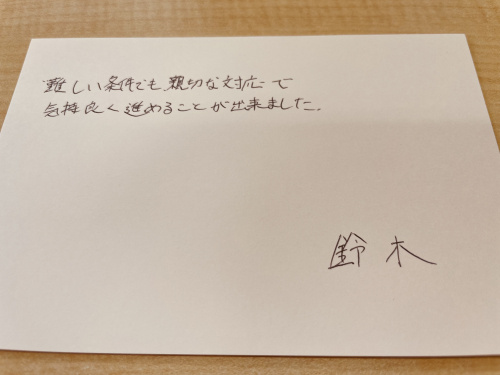 難しい条件でも親切な対応で
気持良く進めることが出来ました。
鈴木